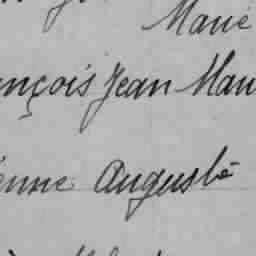 Marie
ançois Jean Mau
enne Auguste